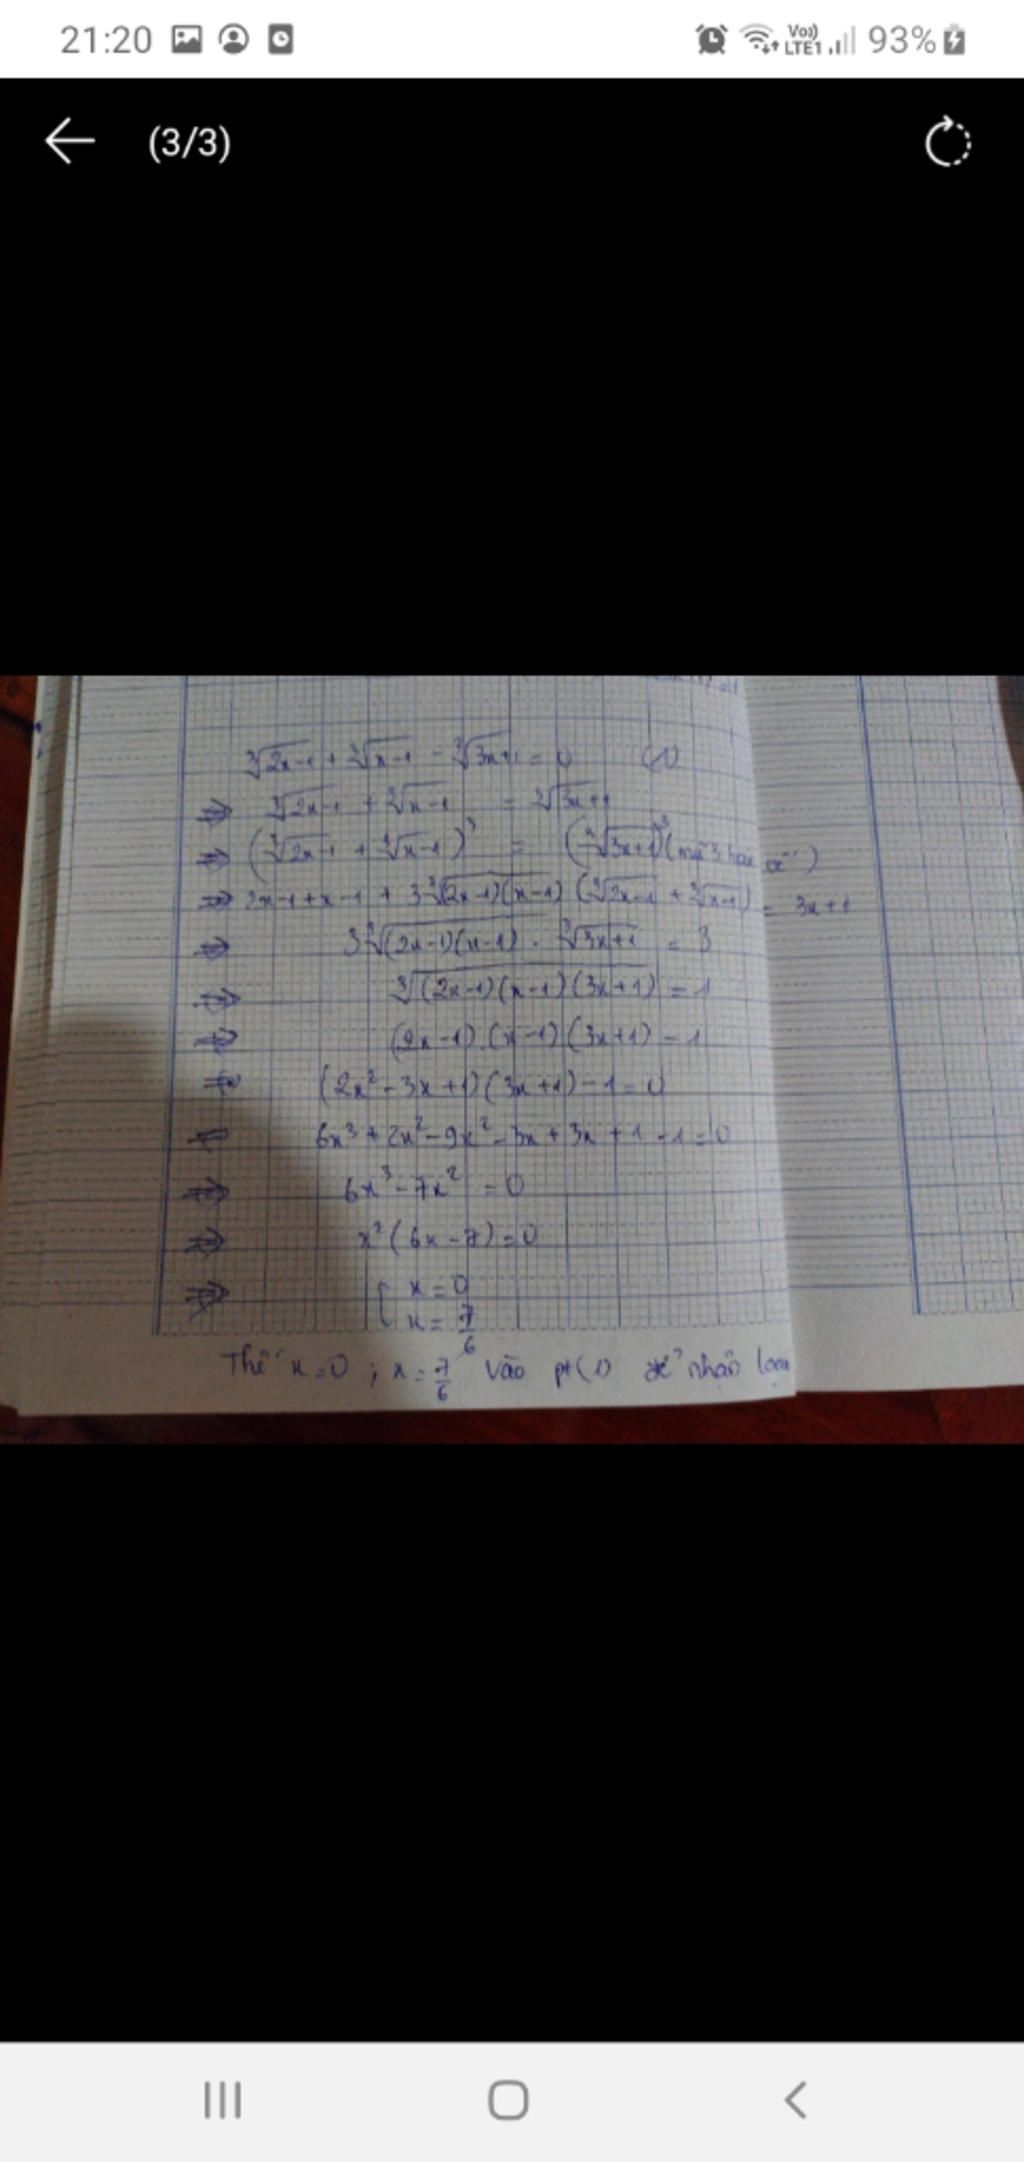 21:20 Vo)) LTE1 93%
(3/3)
∛(2x-1) + ∛(x-1) - ∛(3x+1) = 0 (1)
=> ∛(2x-1) + ∛(x-1) = ∛(3x+1)
=> (∛(2x-1) + ∛(x-1))³ = (∛(3x+1))³ (mũ 3 hai vế)
=> 2x-1+x-1 + 3∛((2x-1)(x-1)) (∛(2x-1) + ∛(x-1)) = 3x+1
=> 3∛((2x-1)(x-1)) . ∛(3x+1) = 3
=> ∛((2x-1)(x-1)(3x+1)) = 1
=> (2x-1).(x-1)(3x+1) = 1
=> (2x²-3x+1)(3x+1)-1=0
=> 6x³+2x²-9x²-3x+3x+1-1=0
=> 6x³-7x²=0
=> x²(6x-7)=0
=> [ x=0
x=7/6
Thế x=0 ; x=7/6 vào pt(1) để nhận loại